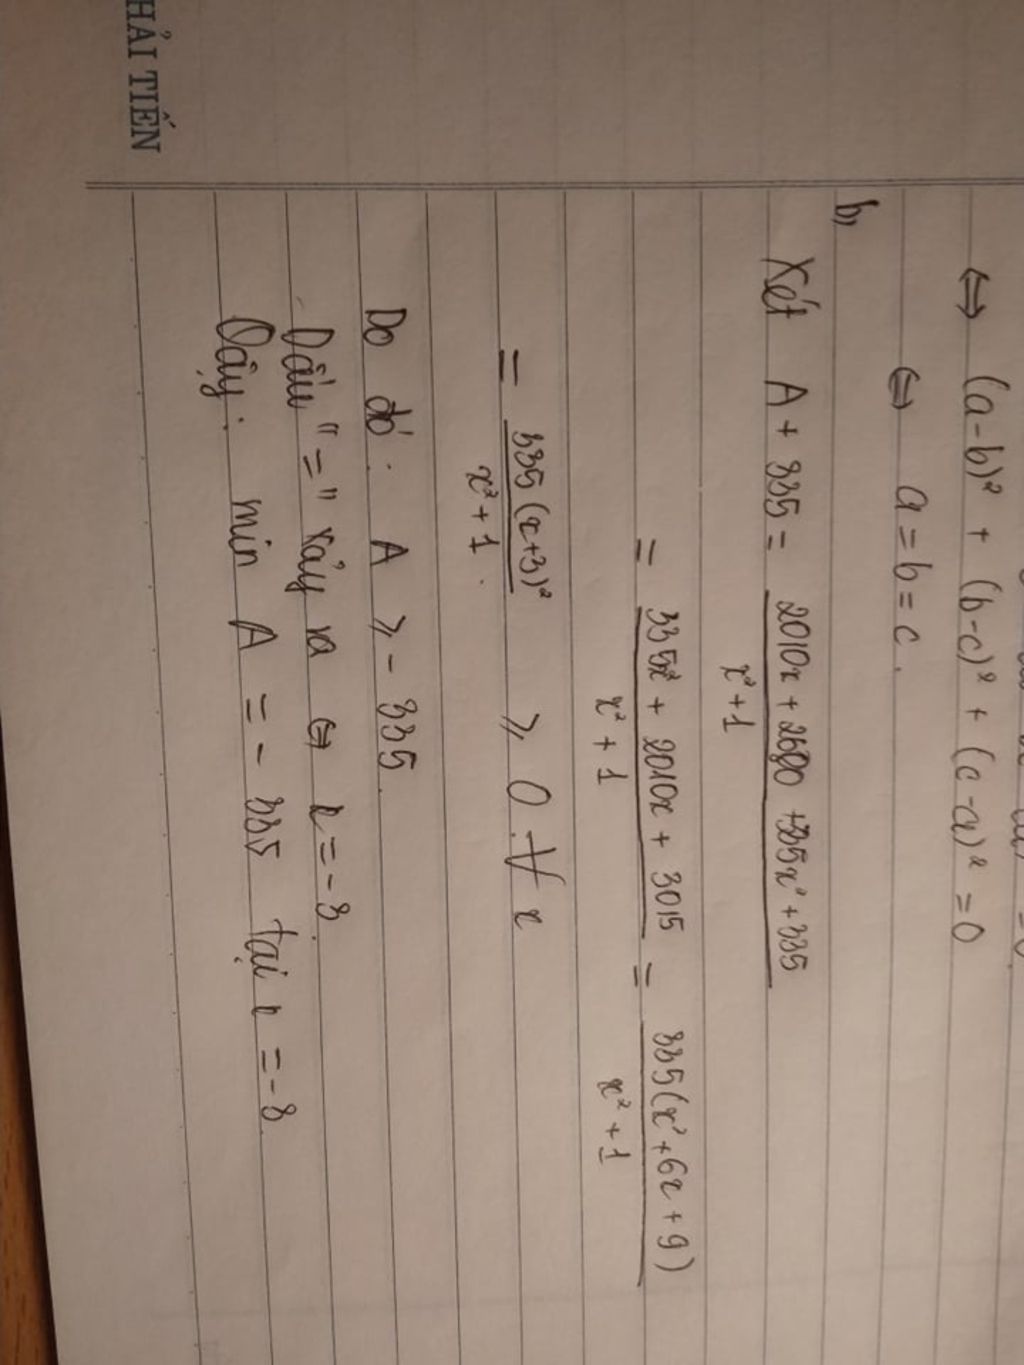 ⇔ (a-b)² + (b-c)² + (c-a)² = 0
⇔ a = b = c.
b,
Xét A + 335 = (2010x + 2680 + 335x² + 335)/(x² + 1)
= (335x² + 2010x + 3015)/(x² + 1) = 335(x² + 6x + 9)/(x² + 1)
= 335(x+3)²/(x² + 1) ⩾ 0 ∀ x
Do đó: A ⩾ - 335.
Dấu "=" xảy ra ⇔ x = -3.
Vậy: min A = - 335 tại x = -3.
HẢI TIẾN